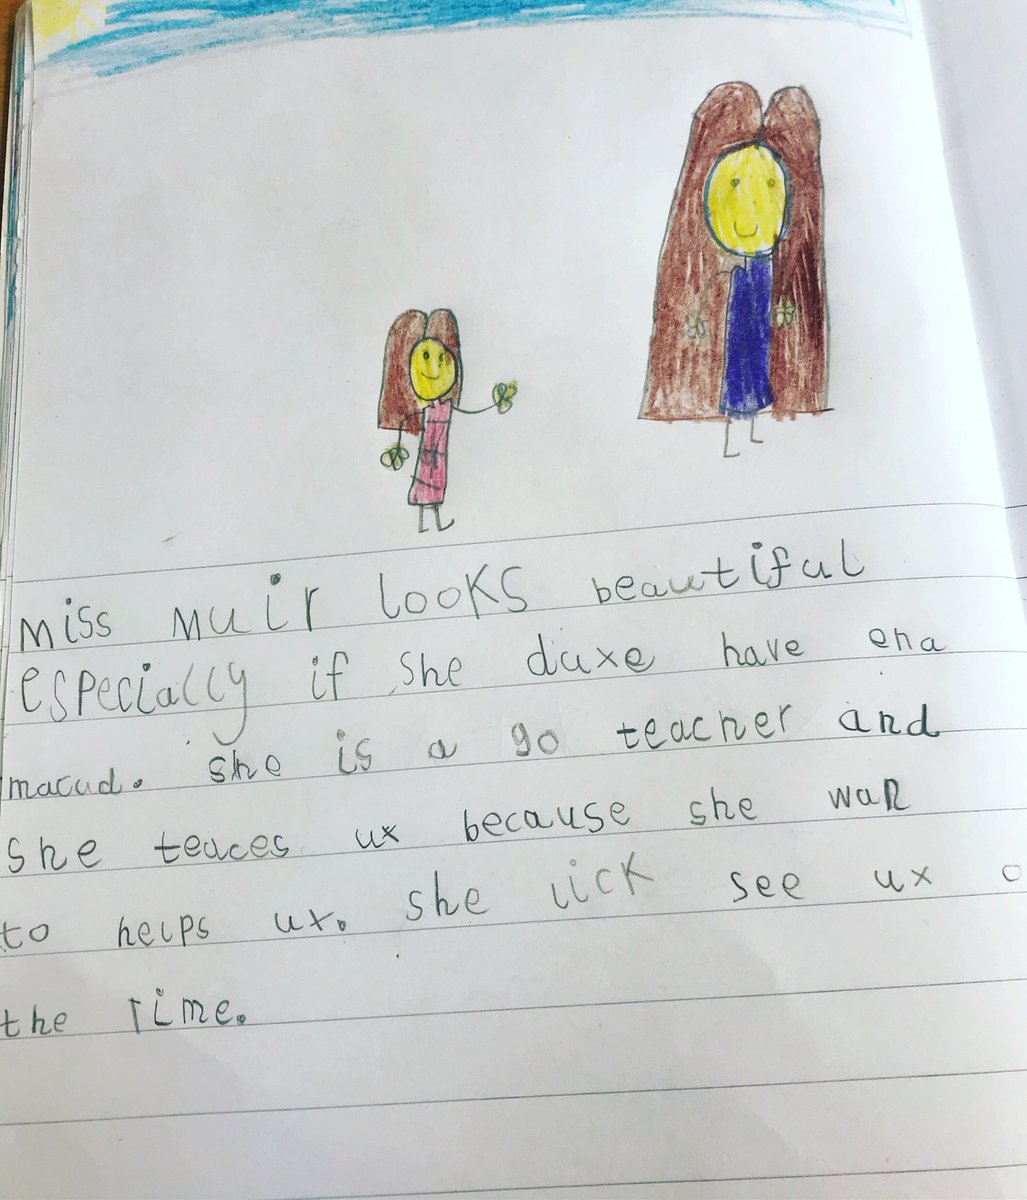 miss muir looks beautiful
especially if she duxe have ena
macud. she is a go teacher and
she teaces ux because she wan
to helps ux. she lick see ux o
the time.